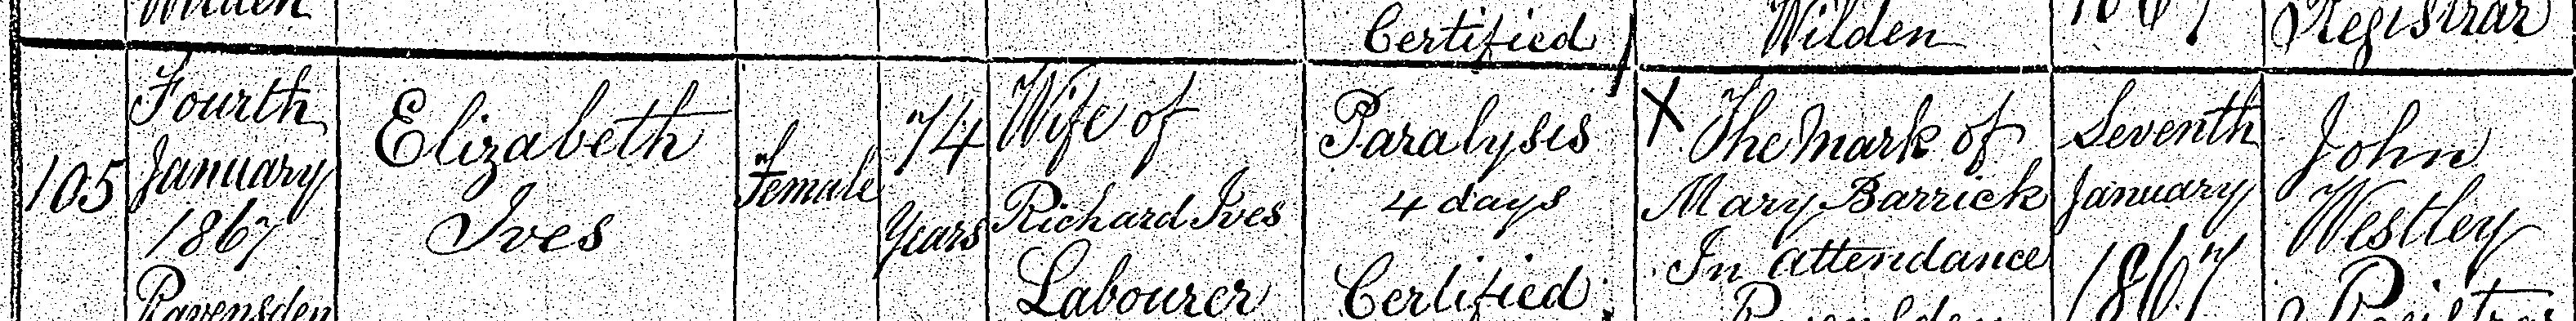 Wilden
Certified
Wilden
1867
Registrar
105
Fourth
January
1867
Ravensden
Elizabeth
Ives
Female
74
Years
Wife of
Richard Ives
Labourer
Paralysis
4 days
Certified
X The Mark of
Mary Barrick
In attendance
Ravensden
Seventh
January
1867
John
Westley
Registrar